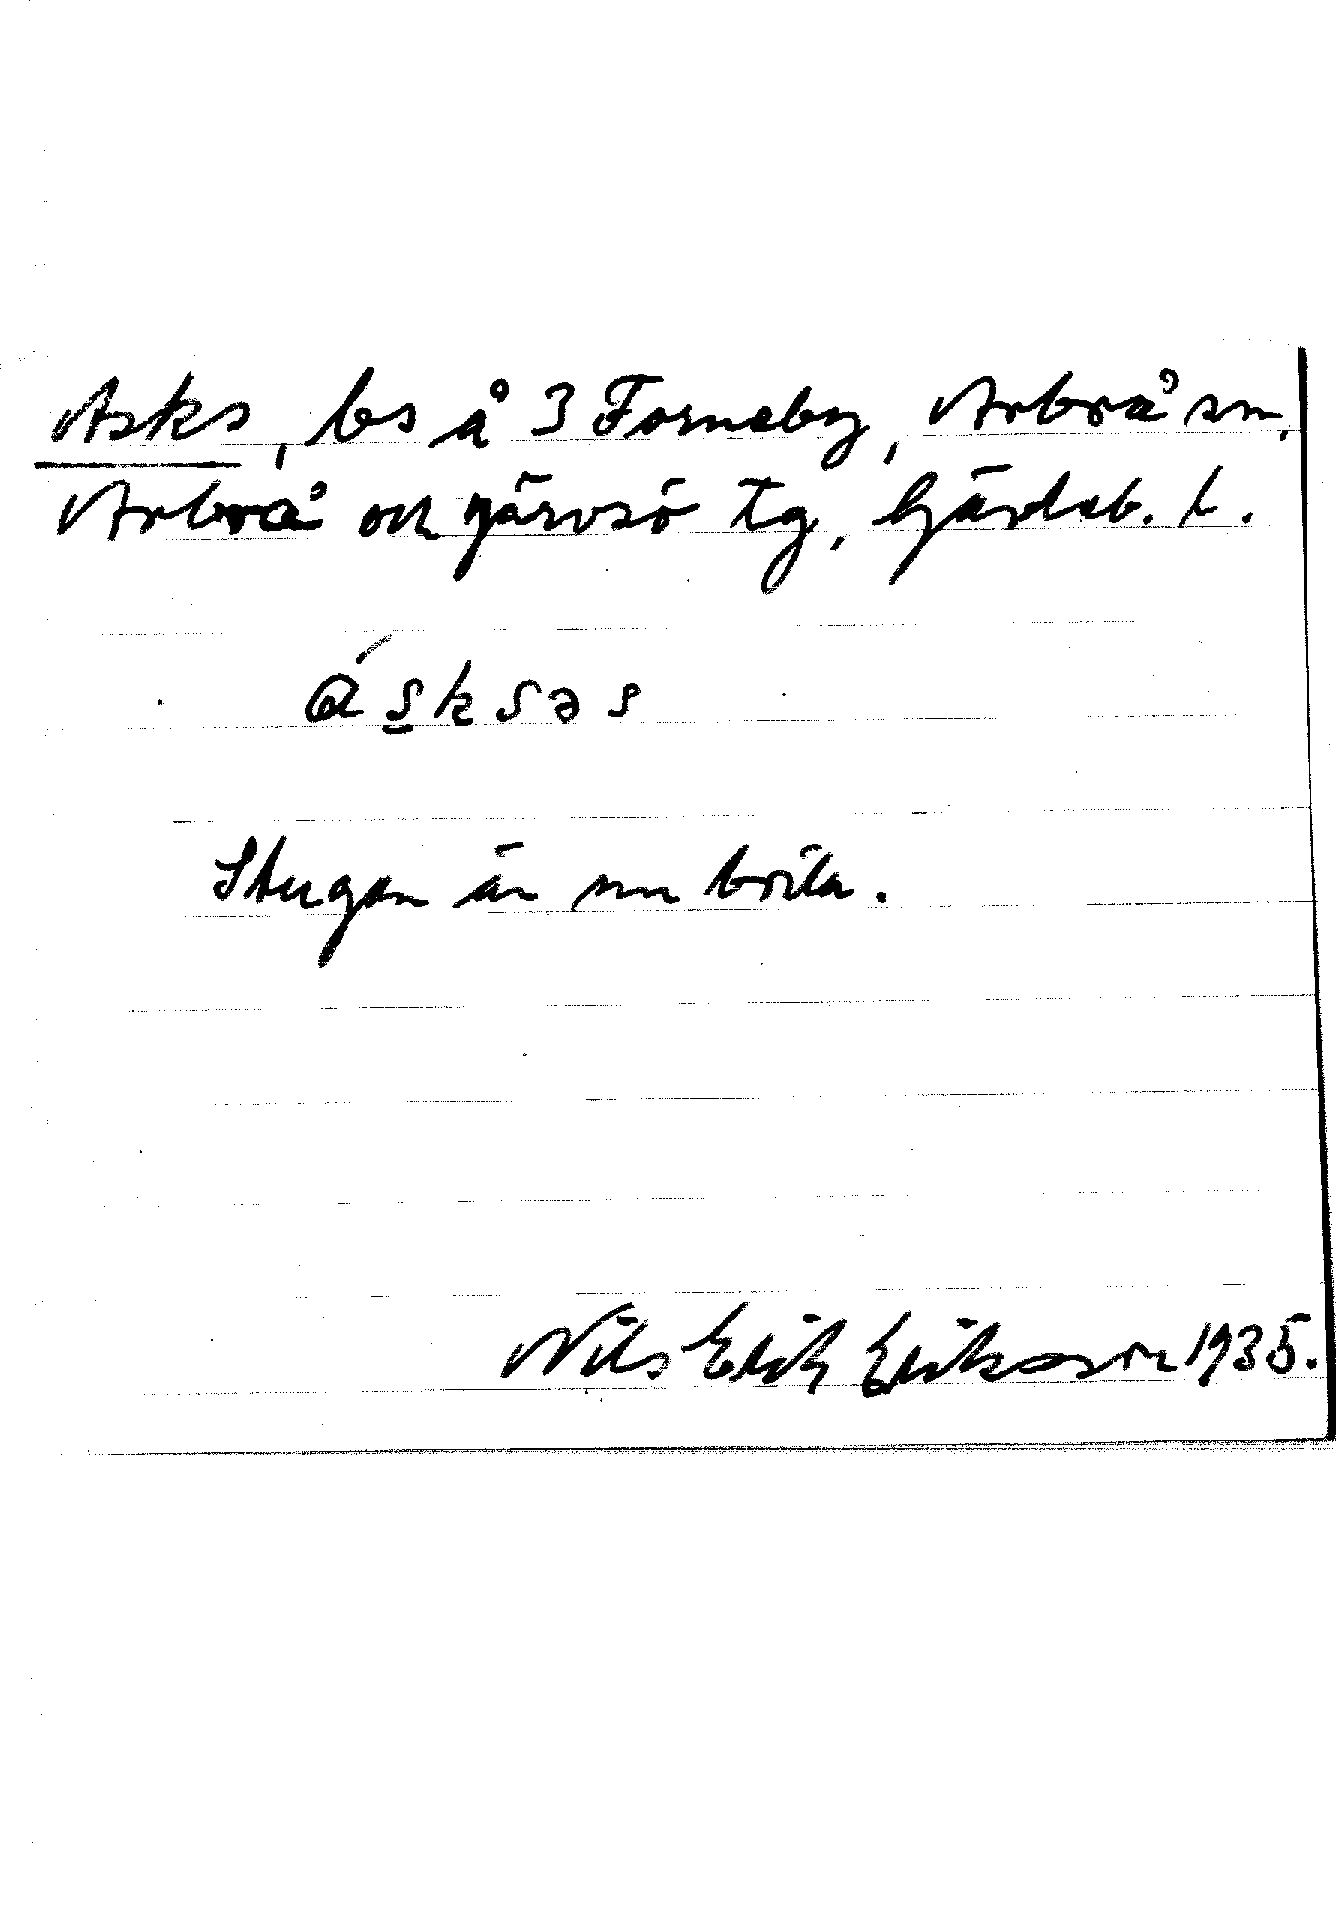 Asks, bs å 3 Forneby, Arbrå sn,
Arbrå och Järvsö tg, Gävleb. l.
áşksəs
Stugan är nu borta.
Nils Erik Eriksson 1935.